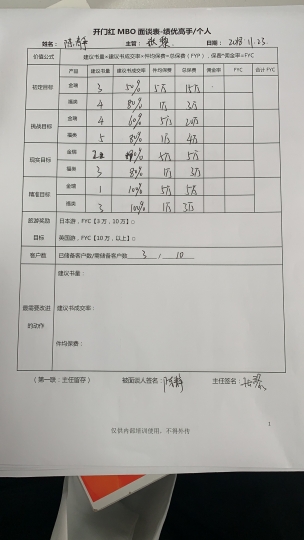 开门红 MBO 面谈表-绩优高手/个人
姓名： 主管： 日期：2018.11.23.
价值公式 建议书量×建议书成交率×件均保费=总保费（FYP），保费*佣金率=FYC
产品 建议书量 建议书成交率 件均保费 总保费 佣金率 FYC 合计 FYC
初定目标 金瑞 3 50% 5万 15万
福类 4 80% 1万 3万
挑战目标 金瑞 4 60% 5万 20万
福类 5 80% 1万 4万
现实目标 金瑞 5万 5万
福类 3 80% 1万 3万
精准目标 金瑞 1 100% 5万 5万
福类 3 100% 1万 3万
旅游奖励 日本游，FYC【3 万，10 万】○
目标 英国游，FYC【10 万，以上】○
客户数 已储备客户数/需储备客户数 3 / 10
建议书量：
最需要改进 建议书成交率：
的动作
件均保费：
（第一联：主任留存） 被面谈人签名： 主任签名：
仅供内部培训使用，不得外传
1